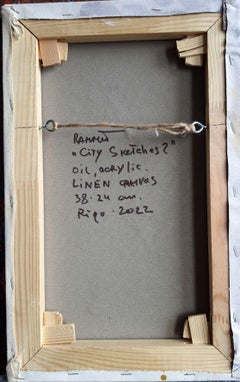 "City Sketches 2"
oil, acrylic.
LINEN CANVAS
38.24 cm.
Riga. 2022